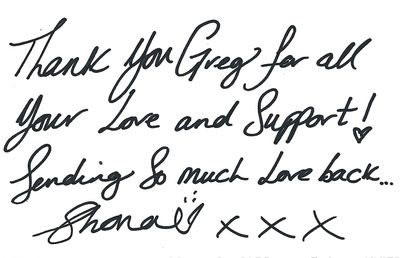 Thank You Greg for all
Your Love and Support!
Sending So much Love back...
Shona x x x